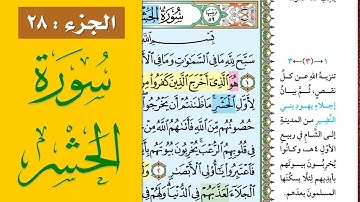 الجزء : ٢٨
سُورَة
الحَشر
سُورَةُ الحَشْرِ
سَبَّحَ لِلَّهِ مَا فِي السَّمَٰوَٰتِ وَمَا فِي
١ هُوَ الَّذِي أَخْرَجَ الَّذِينَ كَفَرُوا مِنْ
لِأَوَّلِ الْحَشْرِ مَا ظَنَنتُمْ أَن يَخْرُجُوا
حُصُونُهُم مِّنَ اللَّهِ فَأَتَاهُمُ اللَّهُ مِنْ
فِي قُلُوبِهِمُ الرُّعْبَ يُخْرِبُونَ بُيُوتَهُم بِأَيْدِ
فَاعْتَبِرُوا يَا أُولِي الْأَبْصَارِ ٢
الْجَلَاءَ لَعَذَّبَهُمْ فِي الدُّنْيَا وَلَهُمْ فِي
١ ← (٣) ← ٣
تنزيهُ اللهِ عن كلِّ
نقصٍ، ثُمَّ بيانُ
إجلاءِ يهودِ بني
النَّضِيرِ من المدينةِ
إلى الشَّامِ في ربيع
الأوَّلِ ٤هـ، وكانُوا
يُخْرِبُونَ بيوتَهم
بأيديهم لِئلَّا يسكُنَها
المسلمونَ بعدَهم.